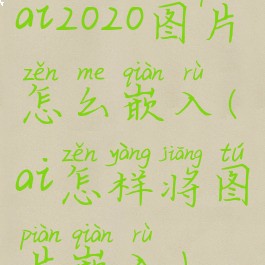 ai2020图片
zěn me qiàn rù
怎么嵌入(
zěn yàng jiāng tú
ai怎样将图
piàn qiàn rù
片嵌入)